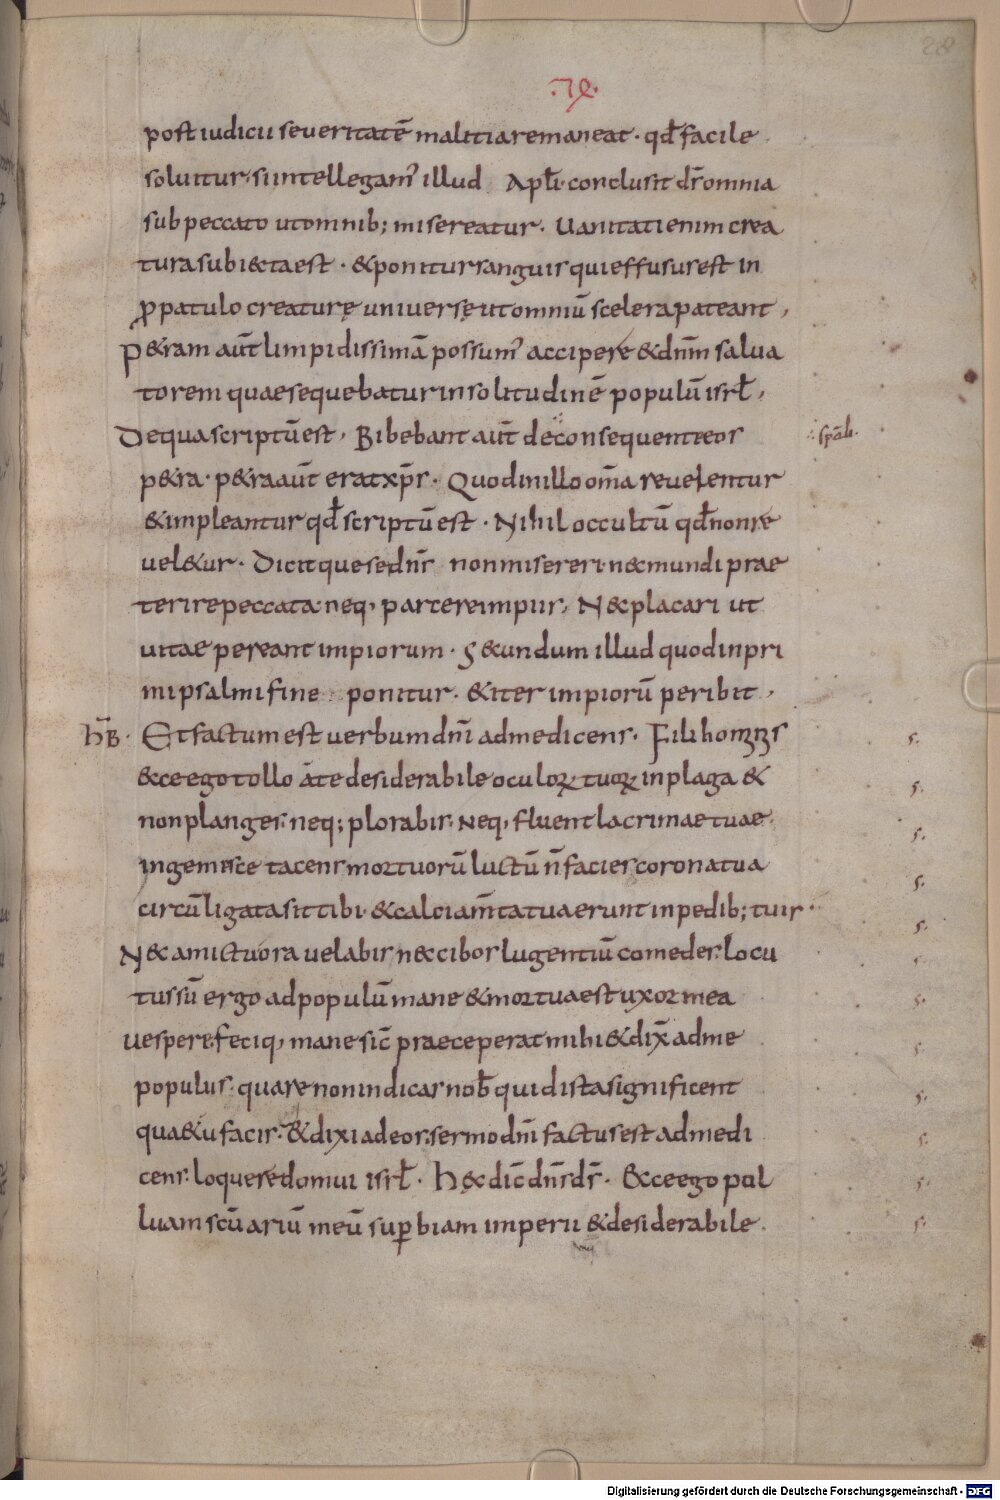 28
post iudicii severitatē malitia remaneat · qđ facile
soluitur · si intellegam' illud Apłi · conclusit d̄s omnia
sub peccato ut omnib; misereatur · Uanitati enim crea
tura subiecta est · & ponitur sanguis qui effusus est in
ꝓpatulo creaturę universę ut omniū scelera pateant ,
P&ram aūt limpidissimā possum' accipere & dn̄m salua
torem quae sequebatur in solitudinē populū isrł ,
De qua scriptū est , Bibebant aūt de consequente eos
p&ra · p&ra aūt erat xp̄s · Quod in illo om̄a revelentur
& impleantur qđ scriptū est · Nihil occultū qđ non re
vel&ur · Dicit que se dn̄s non misereri · nec mundi prae
terire peccata · neq, parcere impiis , Nec placari ut
uitae pereant impiorum · Secundum illud quod in pri
mi psalmi fine ponitur · & iter impiorū peribit ,
h̄B · Et factum est uerbum dn̄i ad me dicens · Fili hominis
ecce ego tollo a te desiderabile oculoꝝ tuoꝝ in plaga &
non planges · neq; plorabis · Neq, fluent lacrimae tuae ·
ingemisce tacens mortuorū luctū n̄ facies corona tua
circūligata sit tibi · & calciam̄ta tua erunt in pedib; tuis ·
Nec amictu ora uelabis nec cibos lugentiū comedes · locu
tus sū ergo ad populū mane & mortua est uxor mea
uespere · feciq, mane sic̄ praeceperat mihi & dix̄ ad me
populus · quare non indicas nob̄ quid ista significent
quae tu facis · & dixi ad eos · sermo dn̄i factus est ad me di
cens · loquere domui isrł · Hęc dic̄ dn̄s d̄s · Ecce ego pol
luam sc̄uariū meū sup̱biam imperii & desiderabile
Digitalisierung gefördert durch die Deutsche Forschungsgemeinschaft - DFG